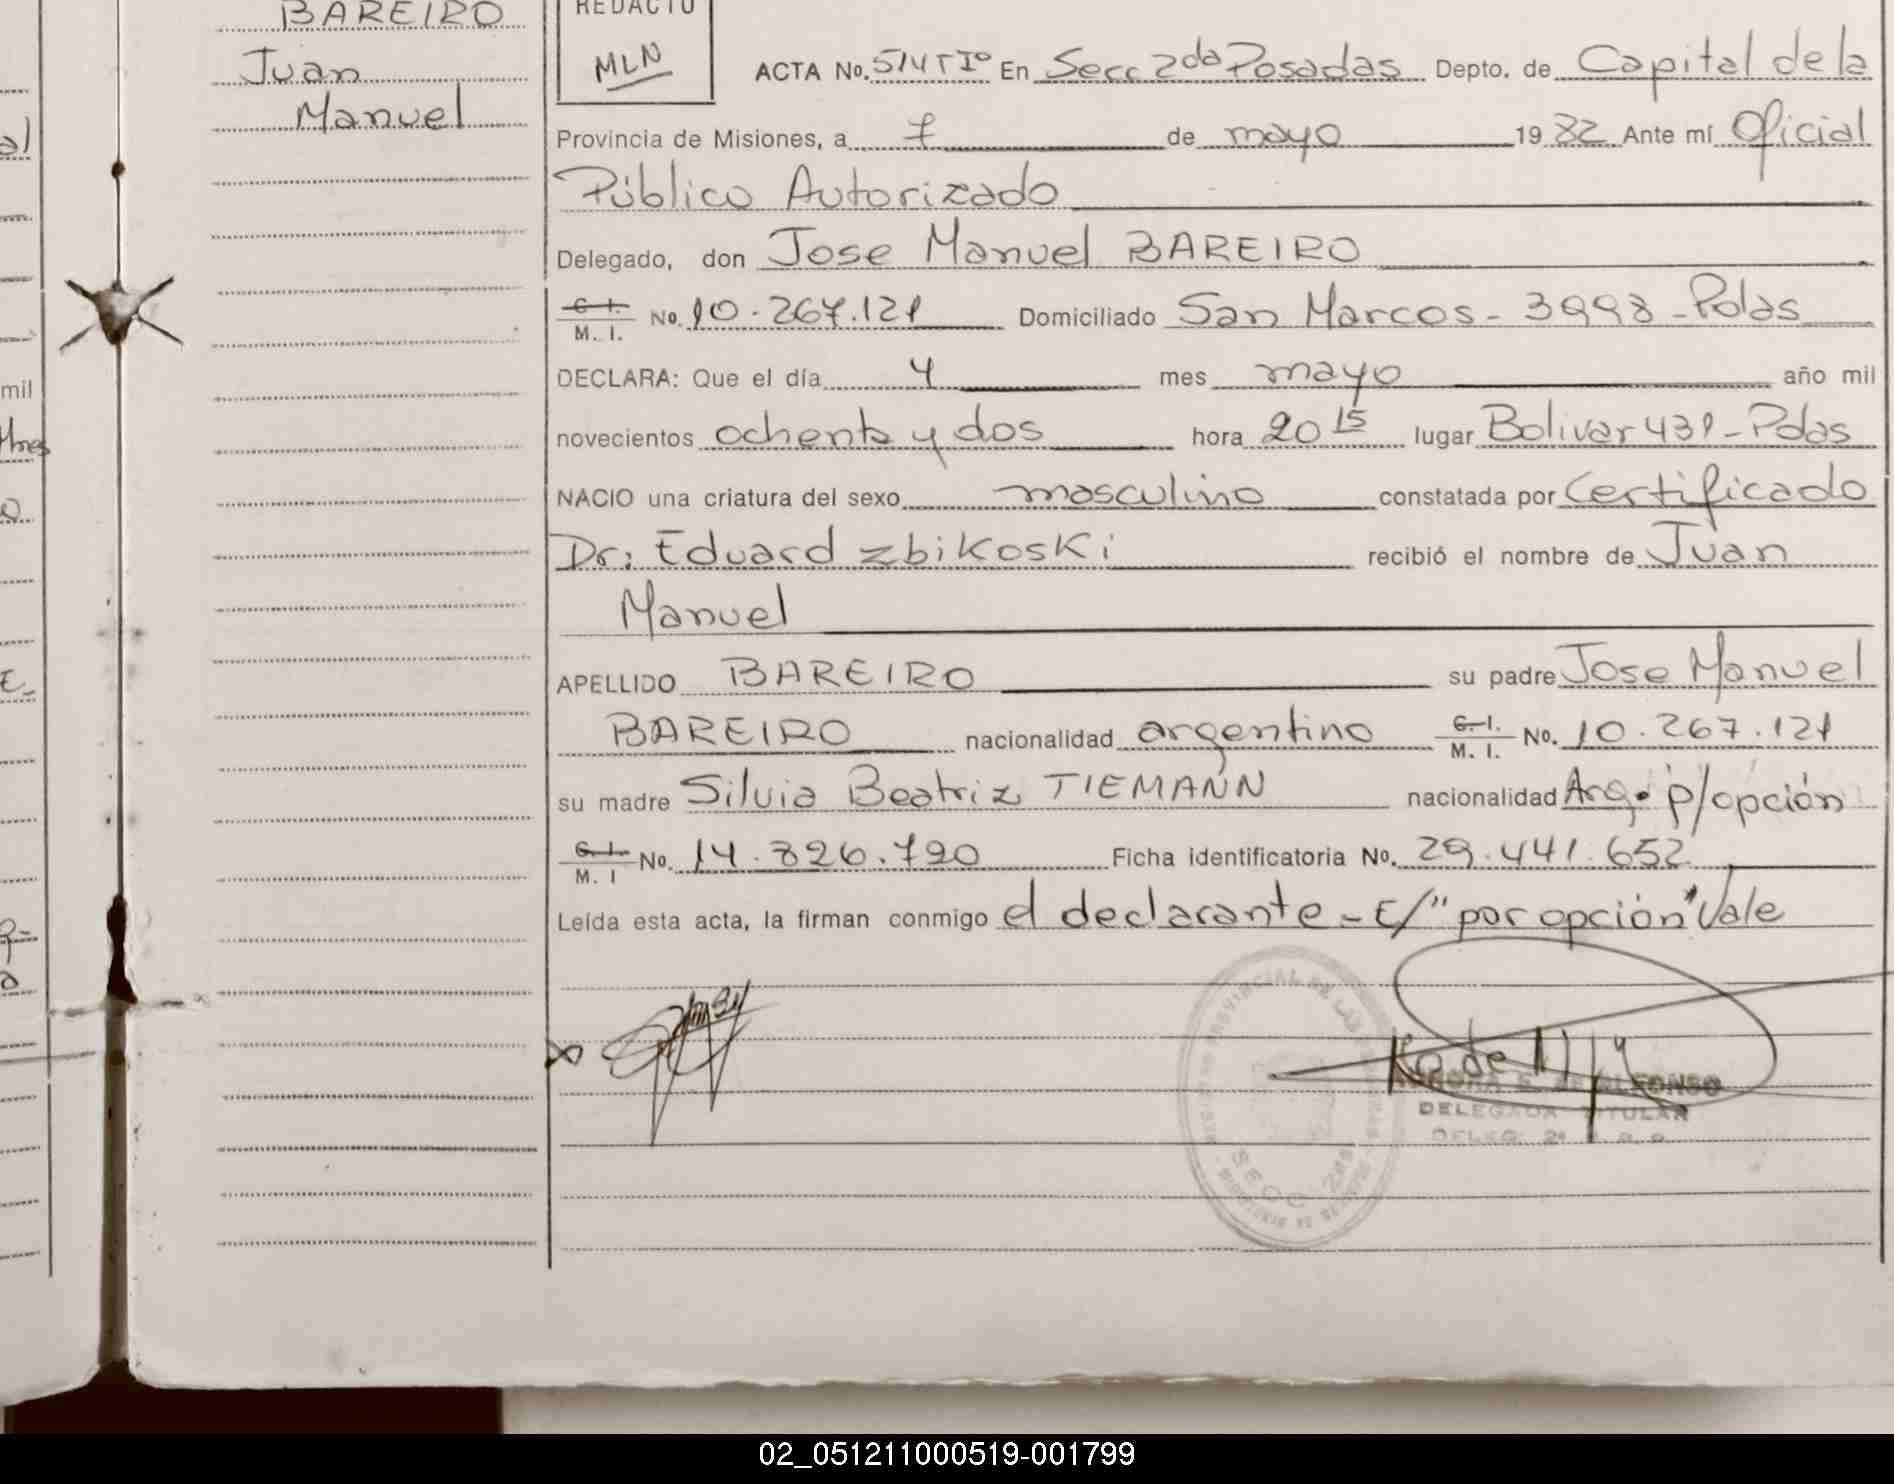 BAREIRO
Juan
Manuel
REDACTO
MLN
ACTA No. 514 T Iº En Secc 2da Posadas Depto. de Capital de la
Provincia de Misiones, a 7 de mayo 1982 Ante mí Oficial
Público Autorizado
Delegado, don Jose Manuel BAREIRO
C. I.
M. I. No. 10.267.121 Domiciliado San Marcos - 3998 - Pdas
DECLARA: Que el día 4 mes mayo año mil
novecientos ochenta y dos hora 20 15 lugar Bolivar 431 - Pdas
NACIO una criatura del sexo masculino constatada por Certificado
Dr: Eduard Zbikoski recibió el nombre de Juan
Manuel
APELLIDO BAREIRO su padre Jose Manuel
BAREIRO nacionalidad argentino C. I.
M. I. No. 10.267.121
su madre Silvia Beatriz TIEMANN nacionalidad Arg. p/opción
C. I.
M. I No. 14.826.720 Ficha identificatoria No. 29.441.652
Leída esta acta, la firman conmigo el declarante - E/" por opción" Vale
DELEGADA TITULAR
SECC 2da
mil
02_051211000519-001799